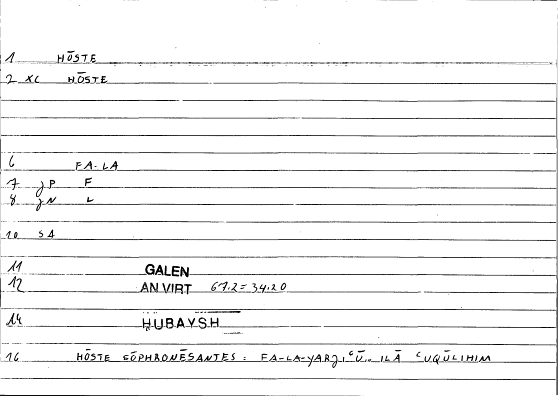 1 HŌSTE
2 XC HŌSTE
6 FA-LA
7 jP F
8 jN L
10 SA
11 GALEN
12 AN VIRT 67.2 = 34.20
14 ḤUBAYSH
16 HŌSTE SŌPHRONĒSANTES : FA-LA-YARJIʿŪ.. ILĀ ʿUQŪLIHIM